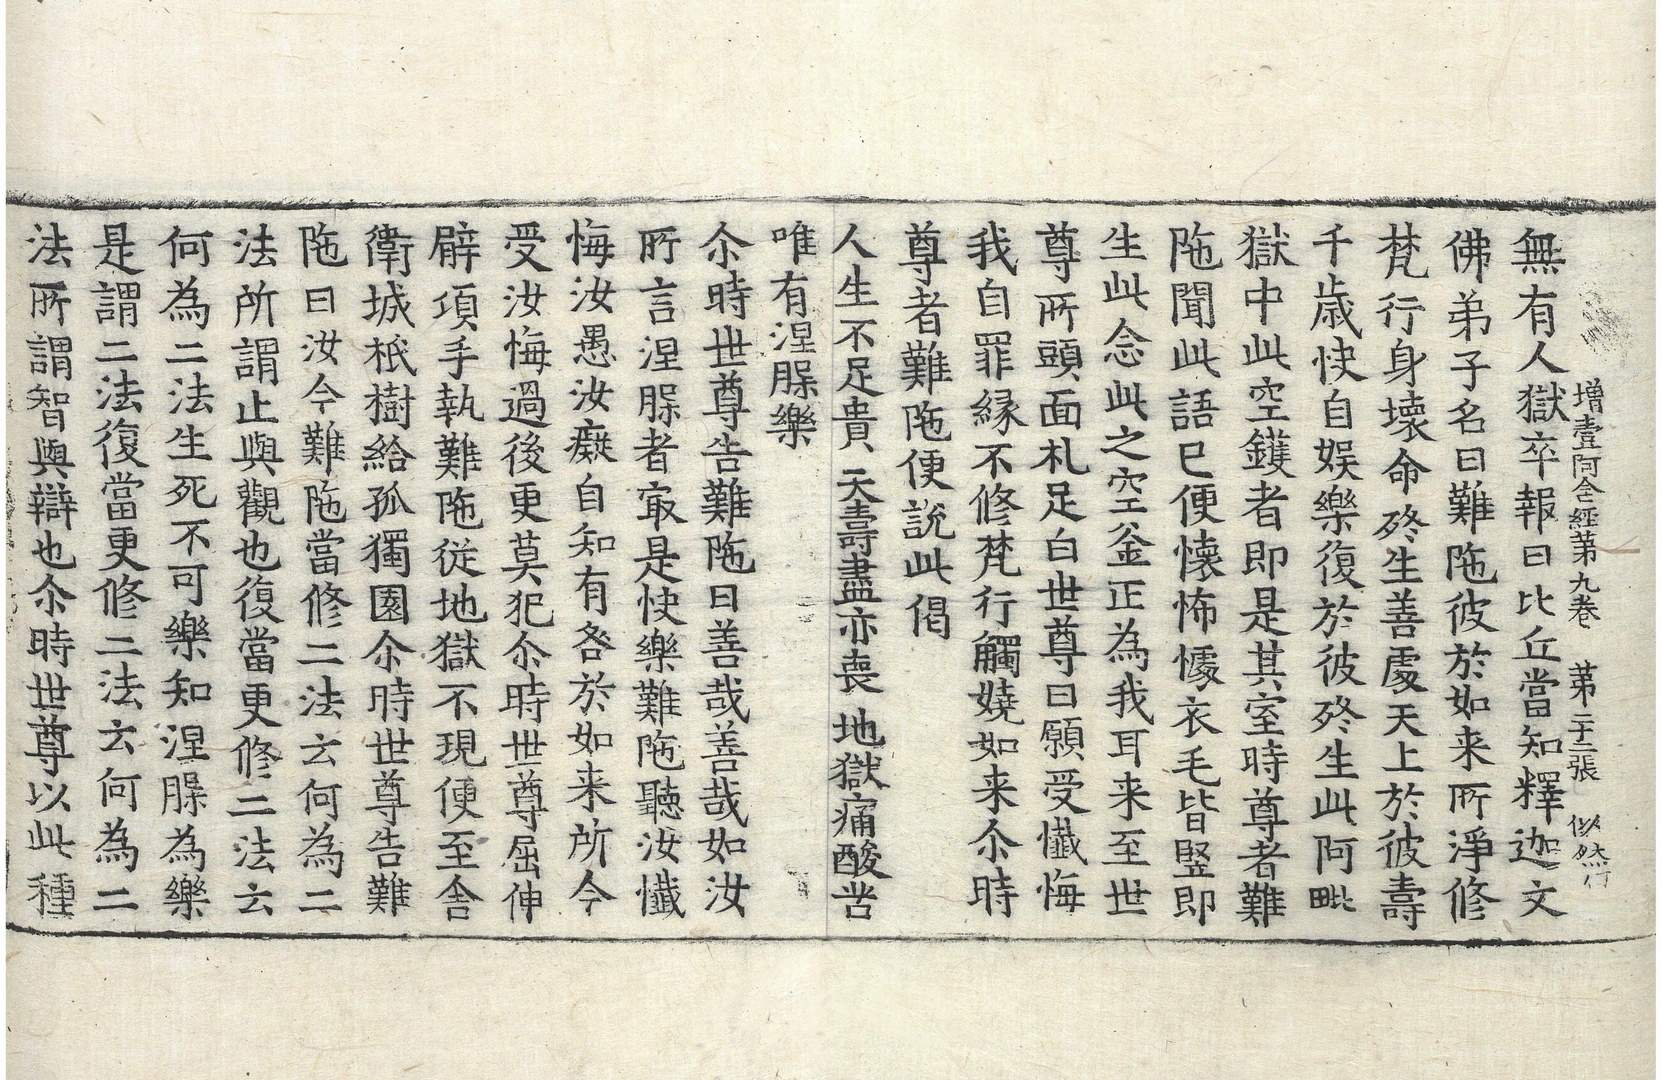 增壹阿含經第九卷 第二十二張 似然行
無有人獄卒報曰比丘當知釋迦文
佛弟子名曰難陁彼於如来所淨修
梵行身壞命終生善處天上於彼壽
千歳快自娱樂復於彼终生此阿毗
獄中此空鑊者即是其室時尊者難
陁聞此語已便懐怖懅衣毛皆竪即
生此念此之空釜正為我耳来至世
尊所頭面礼足白世尊曰願受懺悔
我自罪縁不修梵行觸嬈如来尒時
尊者難陁便說此偈
人生不足貴 天壽盡亦喪 地獄痛酸苦
唯有涅槃樂
尒時世尊告難陁曰善哉善哉如汝
所言涅槃者冣是快樂難陁聽汝懺
悔汝愚汝癡自知有咎於如来所今
受汝悔過後更莫犯尒時世尊屈伸
臂項手執難陁從地獄不現便至舎
衛城祇樹給孤獨園尒時世尊告難
陁曰汝今難陁當修二法云何為二
法所謂止與觀也復當更修二法云
何為二法生死不可樂知涅槃為樂
是謂二法復當更修二法云何為二
法所謂智與辯也尒時世尊以此種